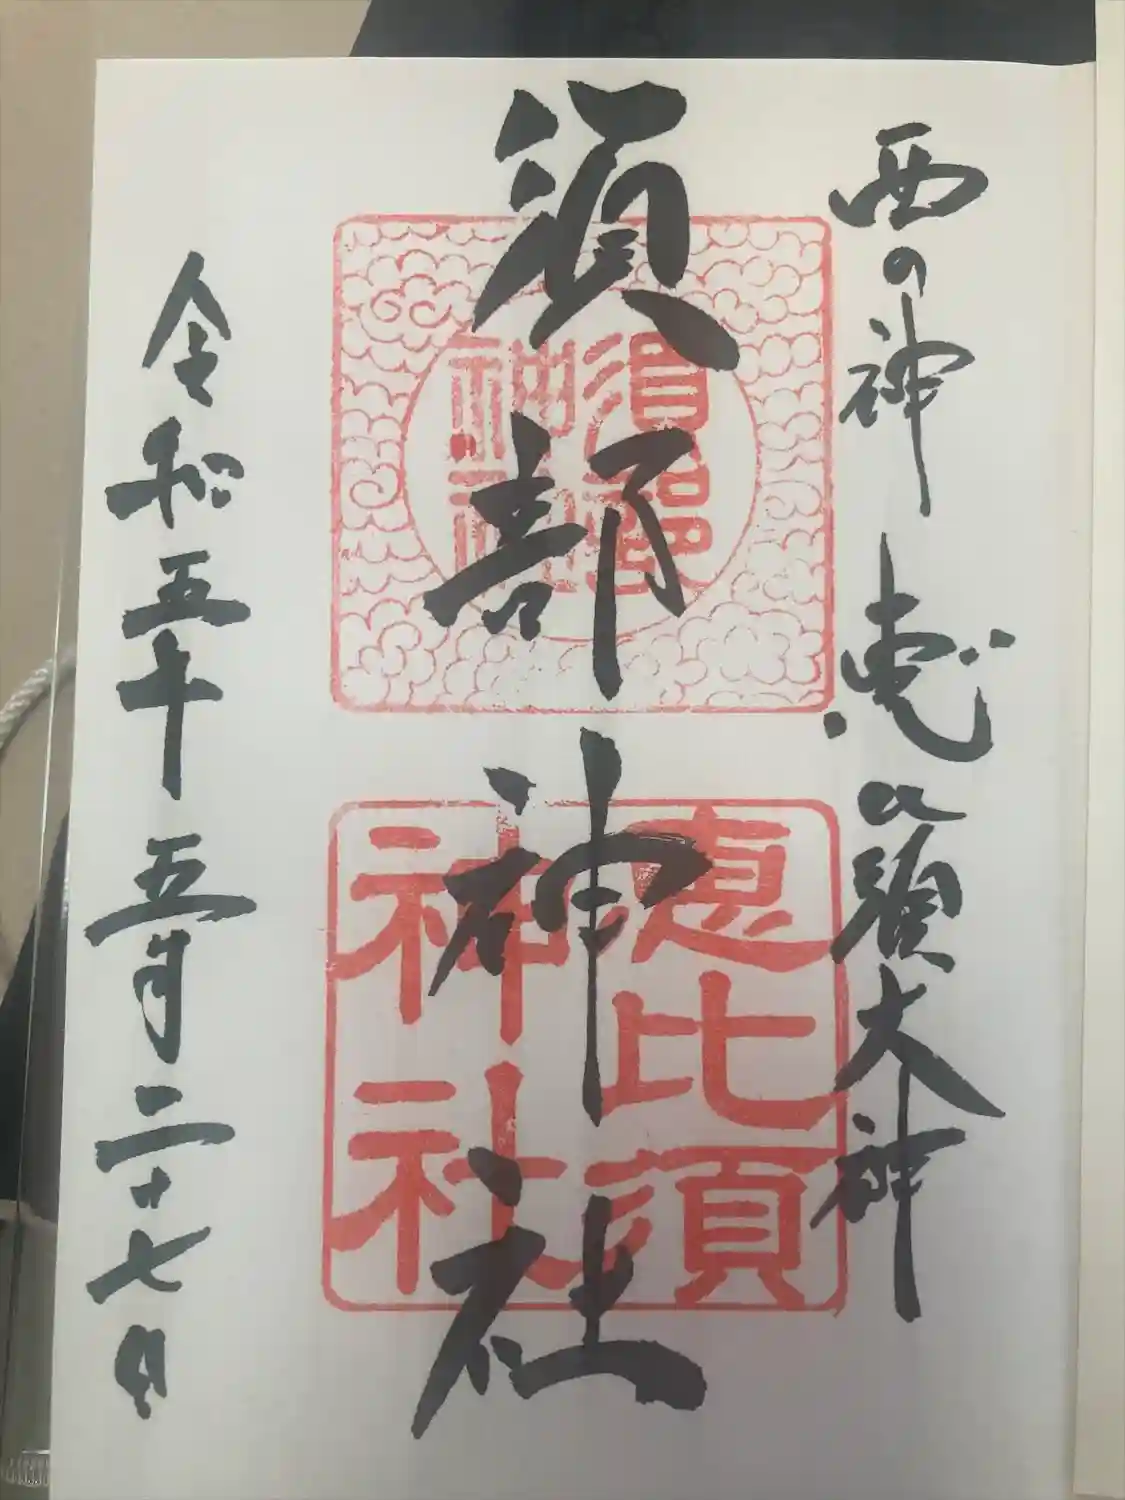 西の神 恵比須大神
須部神社
須部
神社
恵比須
神社
令和五年五月二十七日